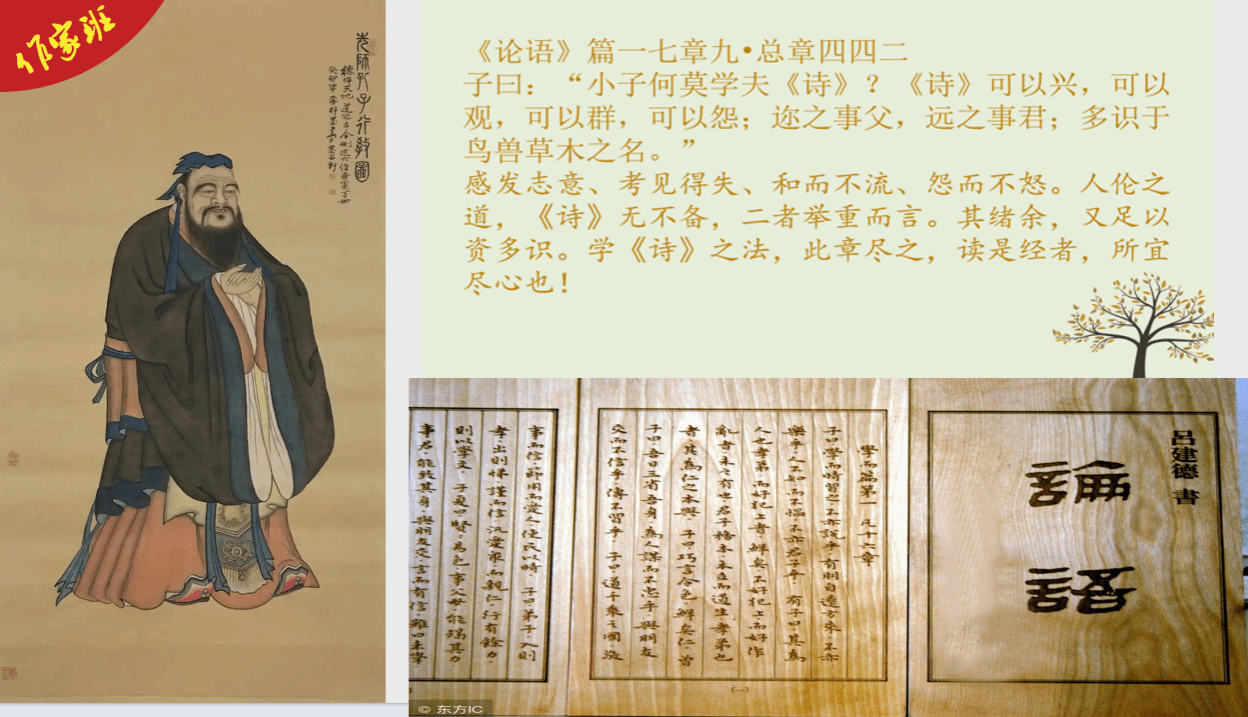 作家班
先師孔子行教圖
德侔天地 道冠古今 删述六经 垂宪万世
《论语》篇一七章九•总章四四二
子曰：“小子何莫学夫《诗》？《诗》可以兴，可以
观，可以群，可以怨；迩之事父，远之事君；多识于
鸟兽草木之名。”
感发志意、考见得失、和而不流、怨而不怒。人伦之
道，《诗》无不备，二者举重而言。其绪余，又足以
资多识。学《诗》之法，此章尽之，读是经者，所宜
尽心也！
吕建德 書
論語
學而篇第一 凡十六章
子曰學而時習之不亦說乎有朋自遠方來不亦
樂乎人不知而不慍不亦君子乎 有子曰其為
人也孝弟而好犯上者鮮矣不好犯上而好作
亂者未之有也君子務本本立而道生孝弟也
者其為仁之本與 子曰巧言令色鮮矣仁 曾
子曰吾日三省吾身為人謀而不忠乎與朋友
交而不信乎傳不習乎 子曰道千乘之國敬
事而信節用而愛人使民以時 子曰弟子入則
孝出則悌謹而信汎愛眾而親仁行有餘力
則以學文 子夏曰賢賢易色事父母能竭其力
事君能致其身與朋友交言而有信雖曰未學
(一)
© 东方IC